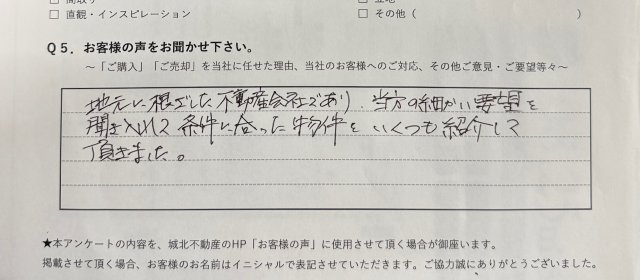 □ 直観・インスピレーション　□ その他（　　　　　　）
Q5．お客様の声をお聞かせ下さい。
～「ご購入」「ご売却」を当社に任せた理由、当社のお客様へのご対応、その他ご意見・ご要望等々～
地元に根ざした不動産会社であり、当方の細かい要望を
聞き入れて条件に合った物件をいくつも紹介して
頂きました。
★本アンケートの内容を、城北不動産のHP「お客様の声」に使用させて頂く場合が御座います。
掲載させて頂く場合、お客様のお名前はイニシャルで表記させていただきます。ご協力誠にありがとうございました。